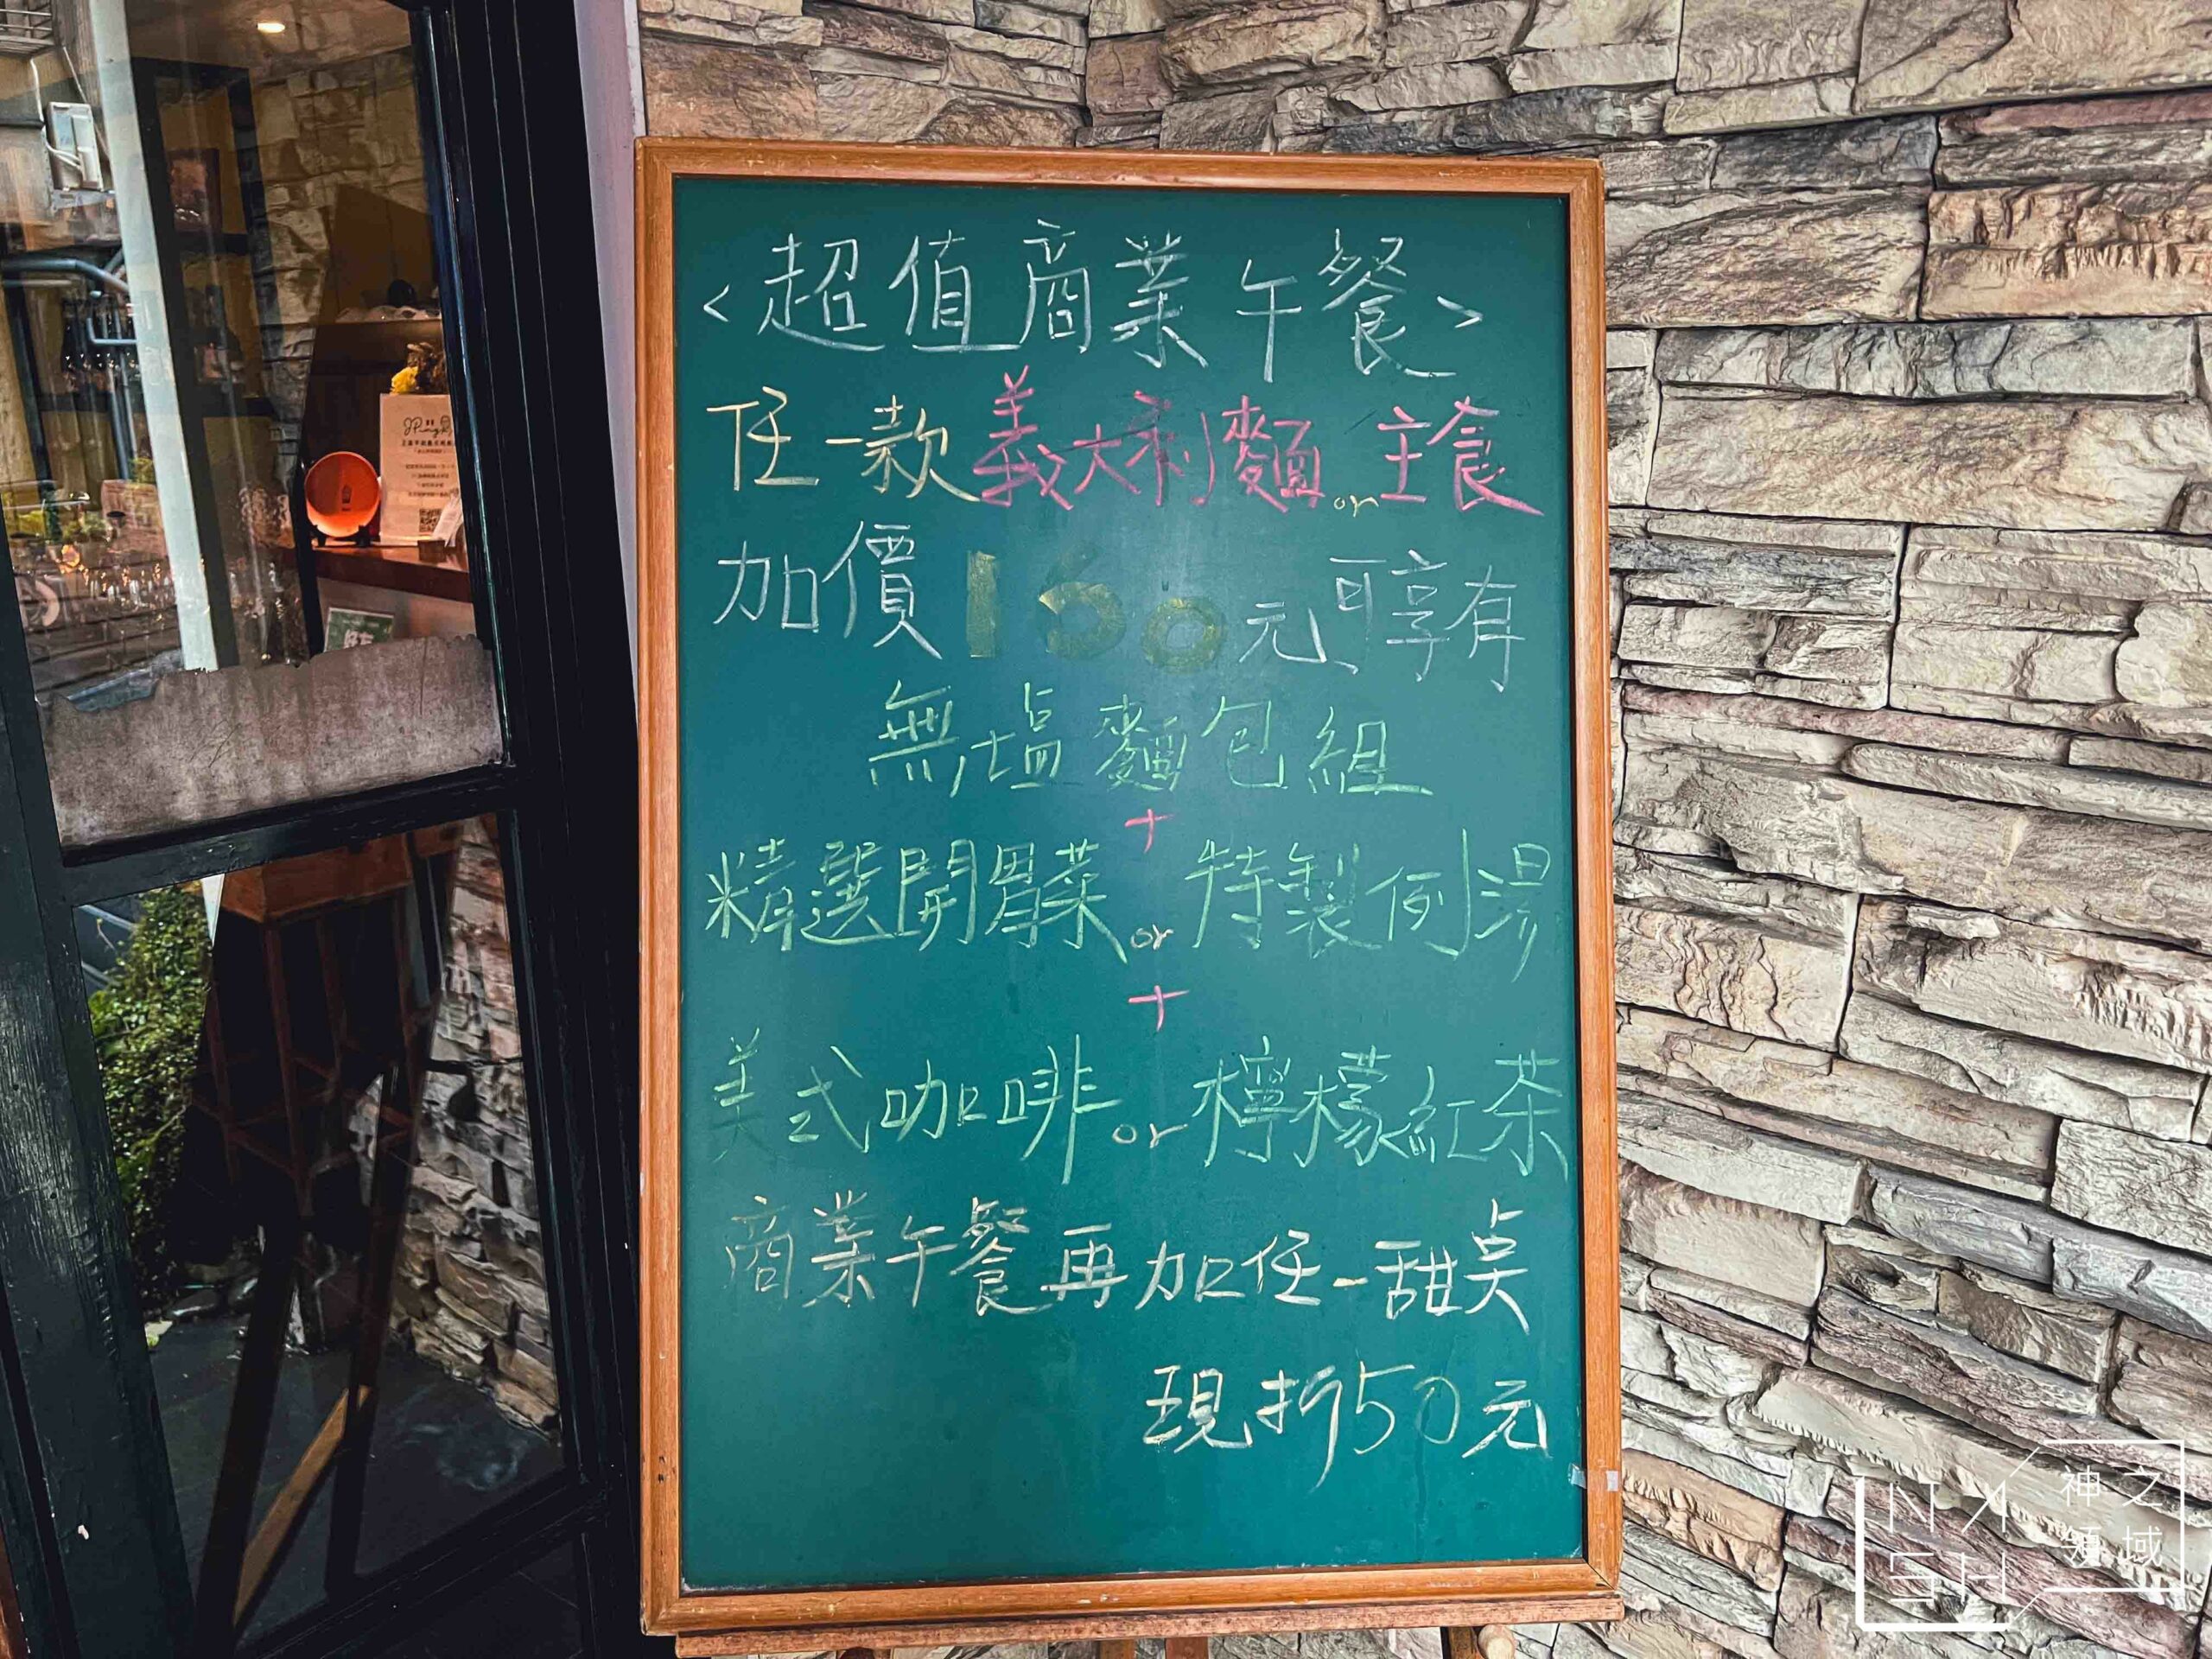 <超值商業午餐>
任一款義大利麵or主食
加價160元可享有
無塩麵包組
+
精選開胃菜or特製例湯
+
美式咖啡or檸檬紅茶
商業午餐再加任一甜点
現折50元
NA
SH
神之
領域